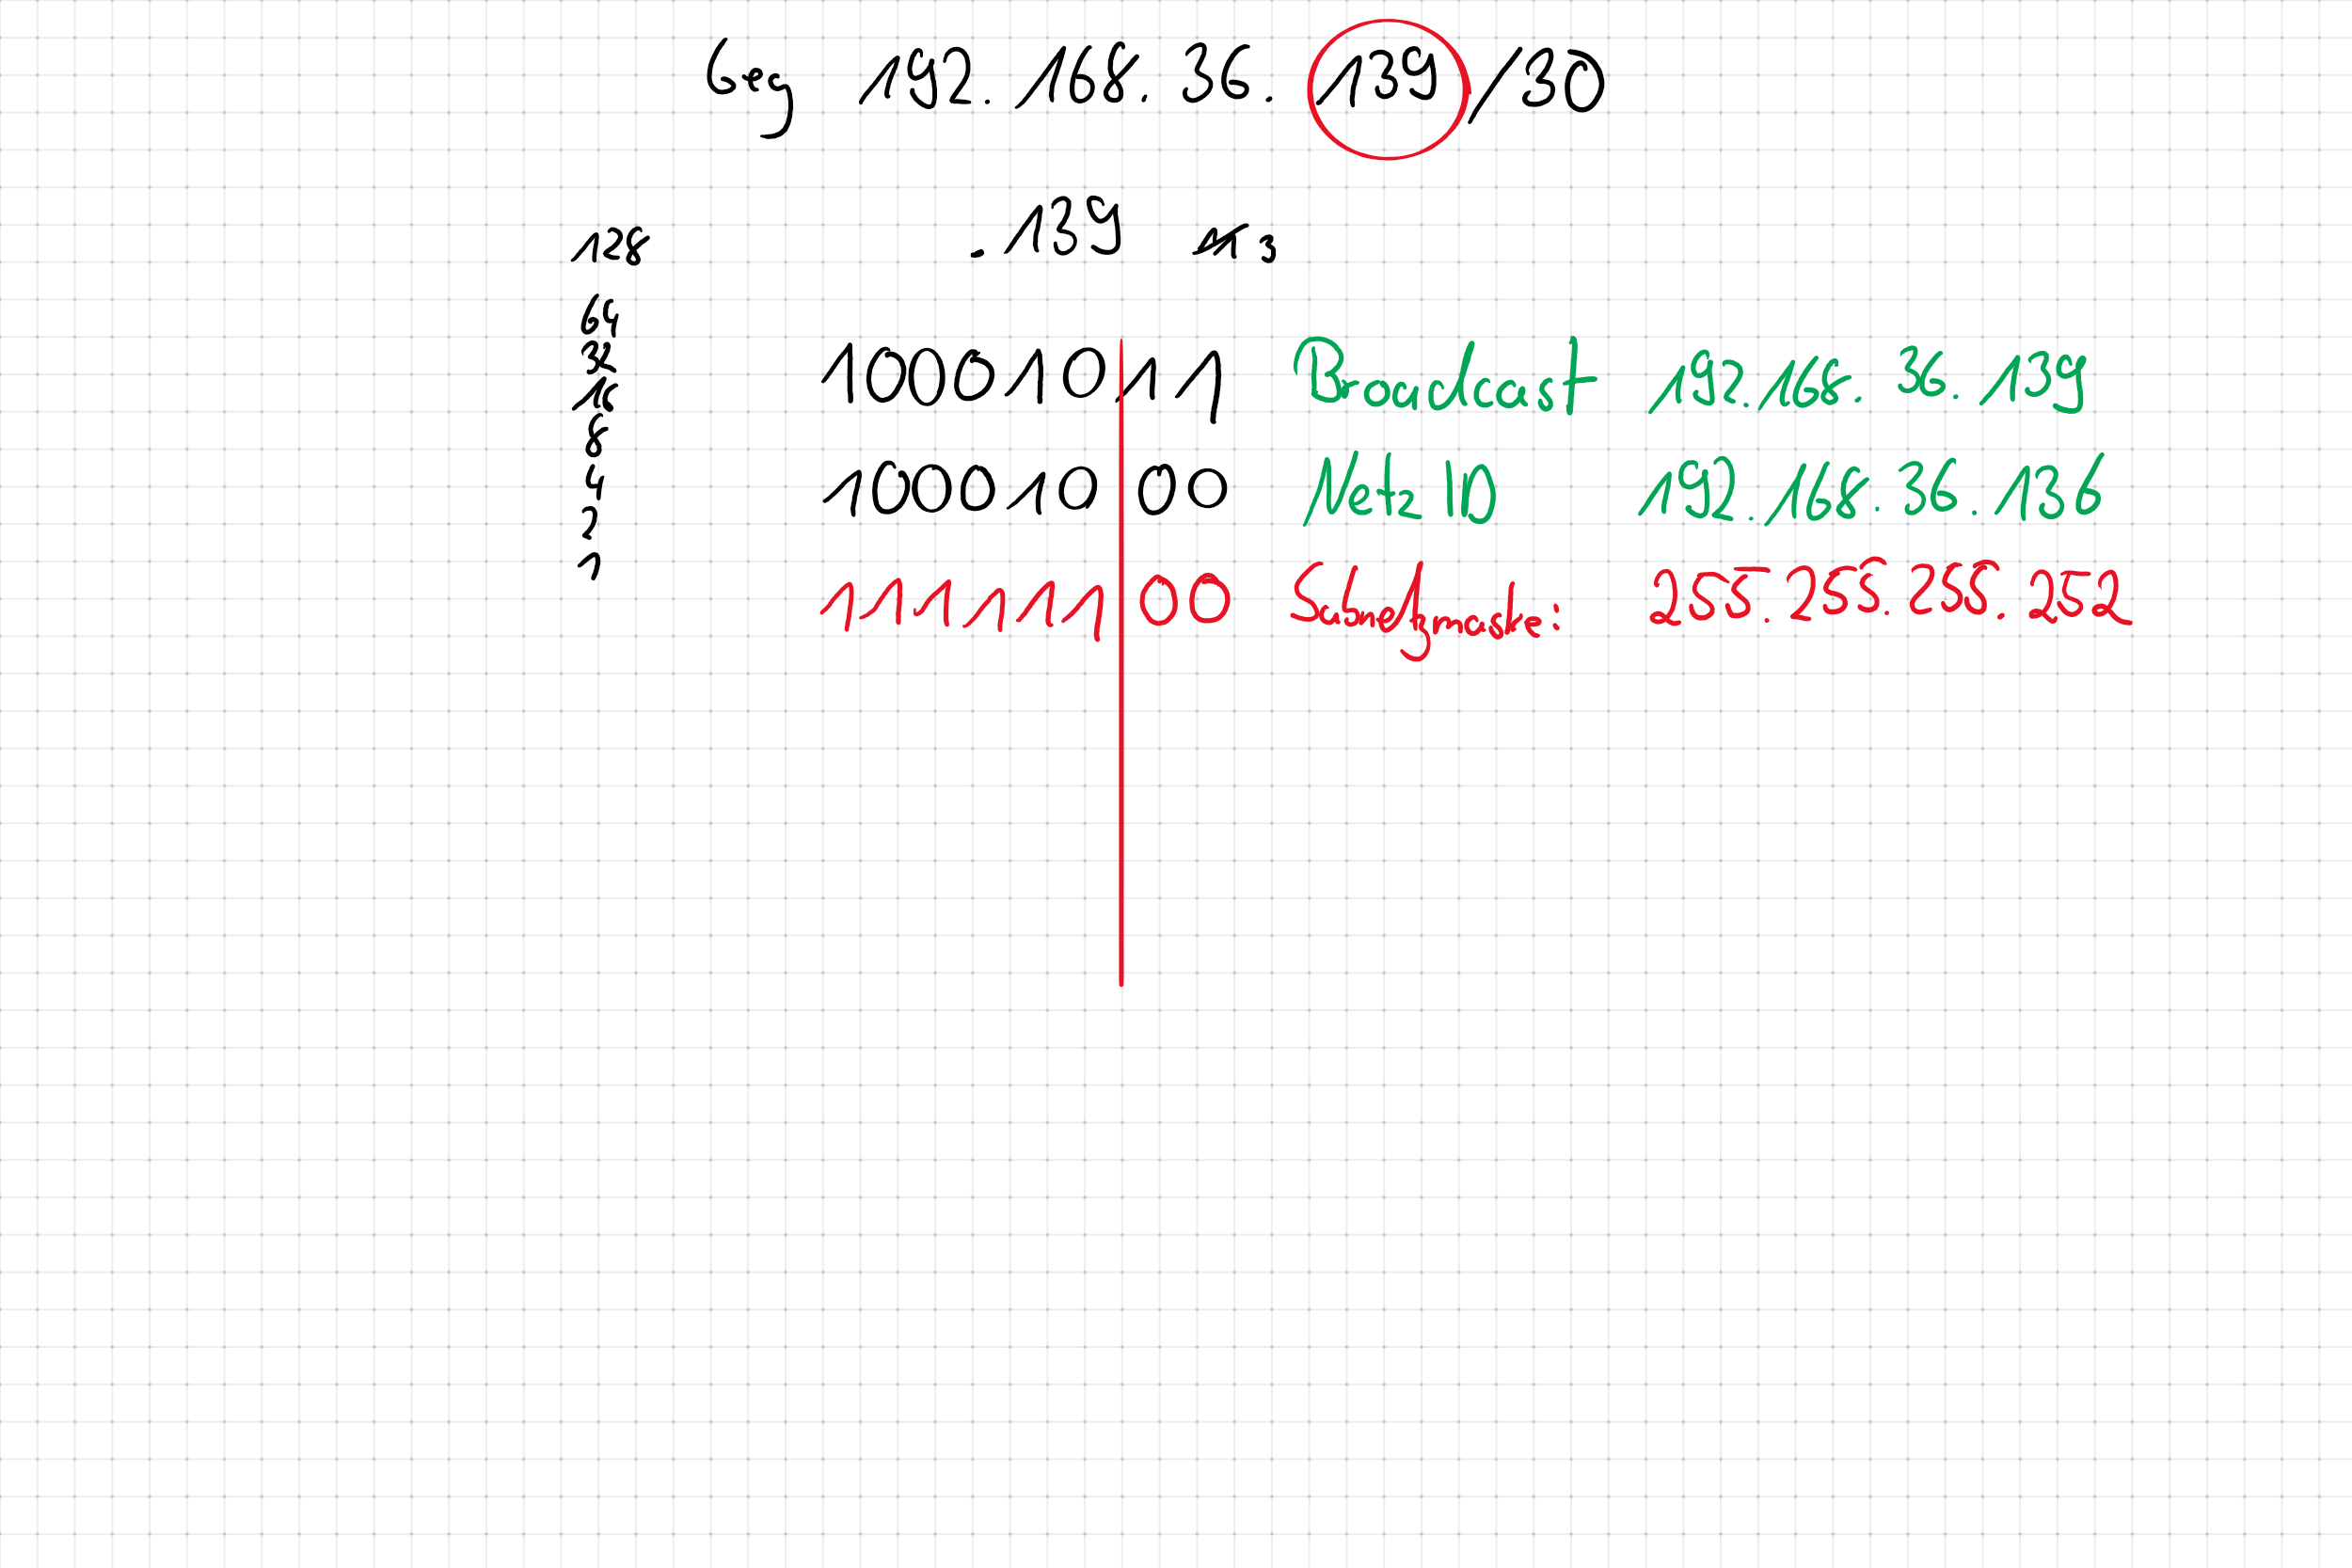 Geg 192.168.36.139/30
128 .139 11 3
64
32
16
8
4
2
1
10001011 Broadcast 192.168.36.139
10001000 Netz ID 192.168.36.136
11111100 Subnetzmaske: 255.255.255.252